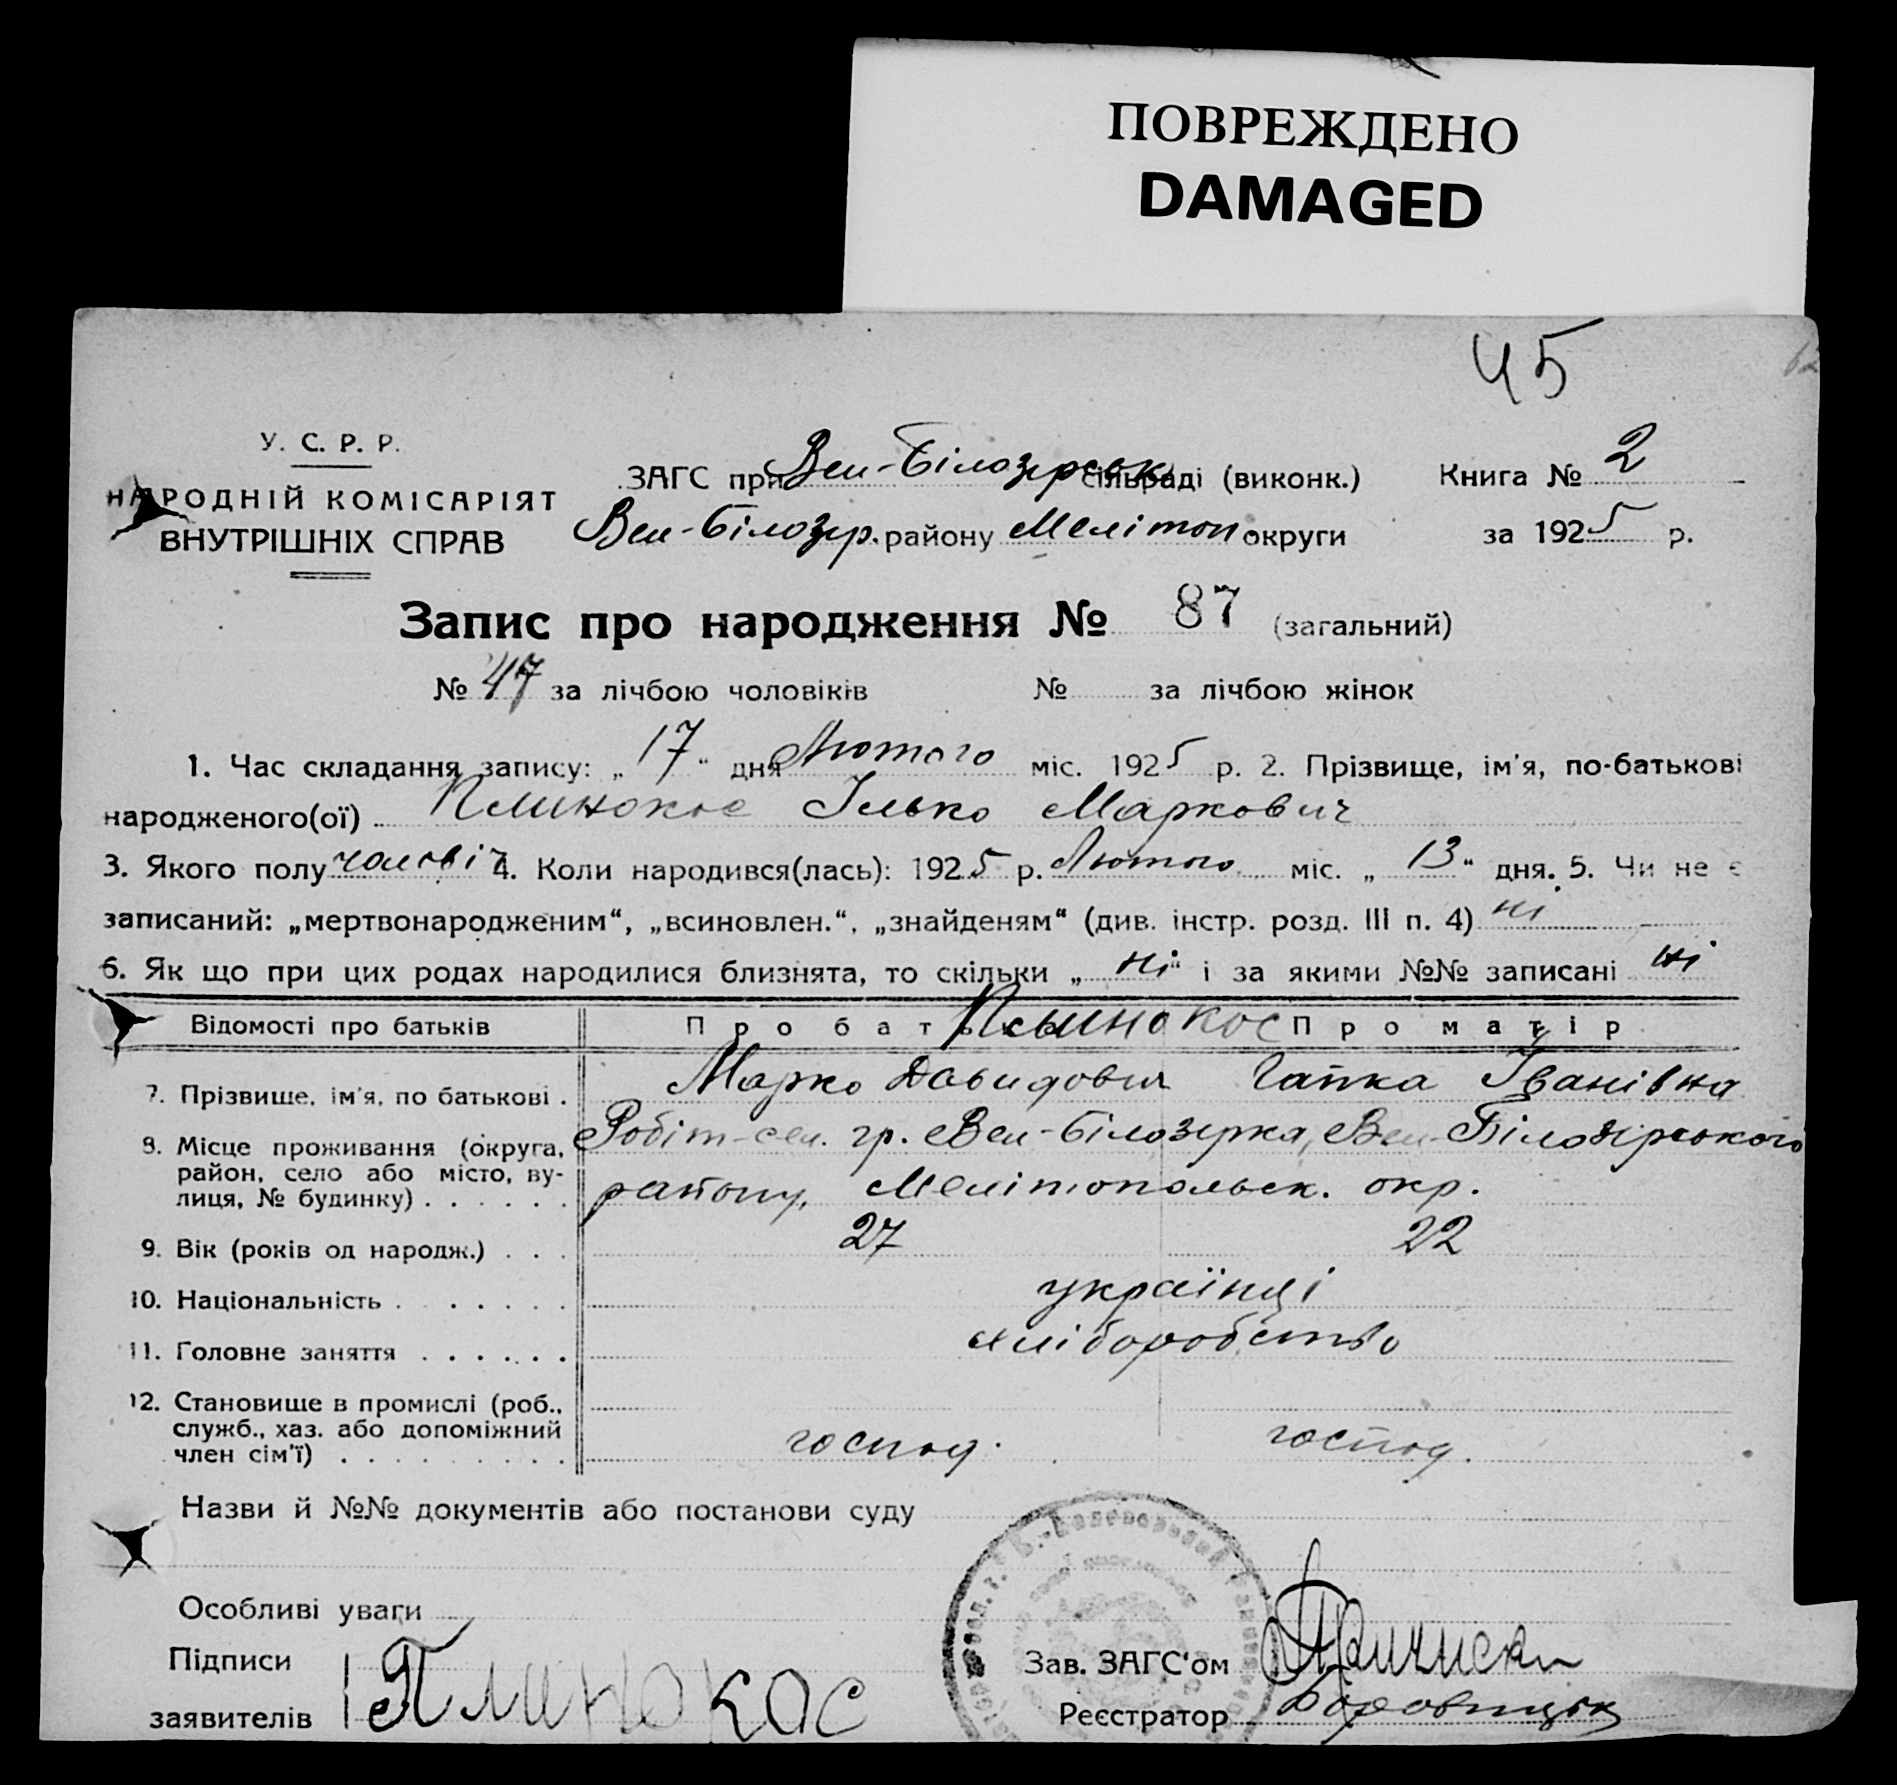 ПОВРЕЖДЕНО
DAMAGED
45
У. С. Р. Р.
НАРОДНІЙ КОМІСАРІЯТ
ВНУТРІШНІХ СПРАВ
ЗАГС при Вел-Білозерськ сільраді (виконк.) Книга № 2
Вел-Білозер. району Мелітоп округи за 1925 р.
Запис про народження № 87 (загальний)
№ 47 за лічбою чоловіків № за лічбою жінок
1. Час складання запису: „ 17 “ дня Лютого міс. 1925 р. 2. Прізвище, ім'я, по-батькові
народженого(ої) Плинокос Ілько Маркович
3. Якого полу чоловіч 4. Коли народився(лась): 1925 р. Лютого міс. „ 13 “ дня. 5. Чи не є
записаний: „мертвонародженим“, „всиновлен.“, „знайденям“ (див. інстр. розд. III п. 4) ні
6. Як що при цих родах народилися близнята, то скільки „ ні “ і за якими №№ записані ні
Відомості про батьків Про батька Плинокос Про матір
7. Прізвище, ім'я, по батькові . Марко Давидович Гапка Іванівна
8. Місце проживання (округа, район, село або місто, вулиця, № будинку) . . . . . . Робіт-сел. гр. Вел-Білозерка, Вел-Білозірського
району, Мелітопольськ. окр.
9. Вік (років од народж.) . . . 27 22
10. Національність . . . . . . українці
11. Головне заняття . . . . . . хліборобство
12. Становище в промислі (роб., служб., хаз. або допоміжний член сім'ї) . . . . . . . . . господ. господ.
Назви й №№ документів або постанови суду
Особливі уваги
Підписи
заявителів Плинокос
Зав. ЗАГС'ом
Реєстратор